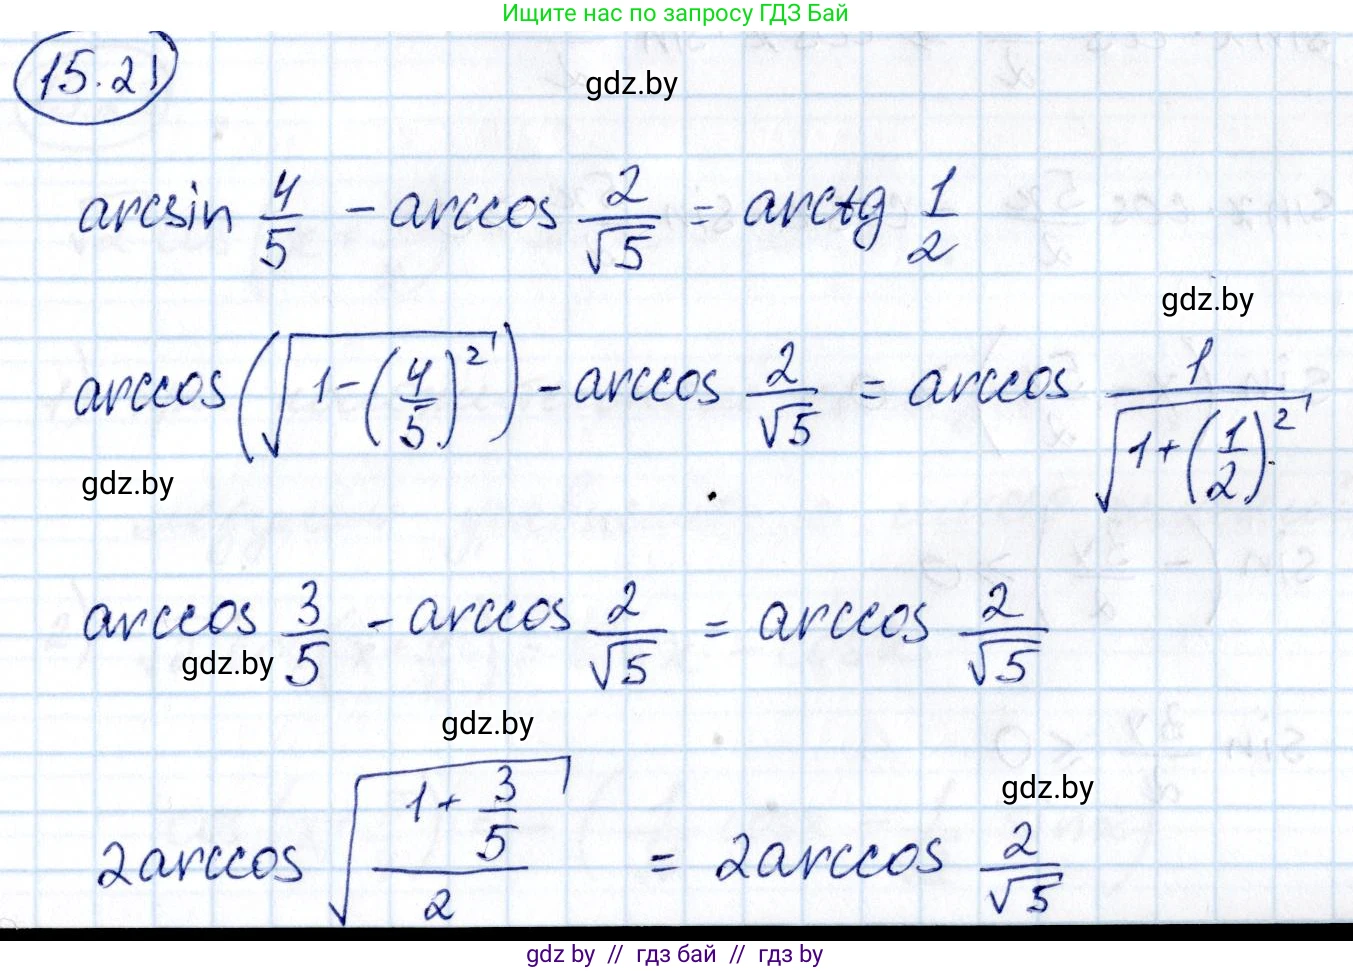 Ищите нас по запросу ГДЗ Бай
15.21
gdz.by
arcsin 4/5 - arccos 2/√5 = arctg 1/2
gdz.by
arccos(√(1-(4/5)²)) - arccos 2/√5 = arccos 1/√(1+(1/2)²)
gdz.by
arccos 3/5 - arccos 2/√5 = arccos 2/√5
gdz.by
gdz.by
gdz.by
2arccos √((1+3/5)/2) = 2arccos 2/√5
gdz by // гдз бай // гдз by